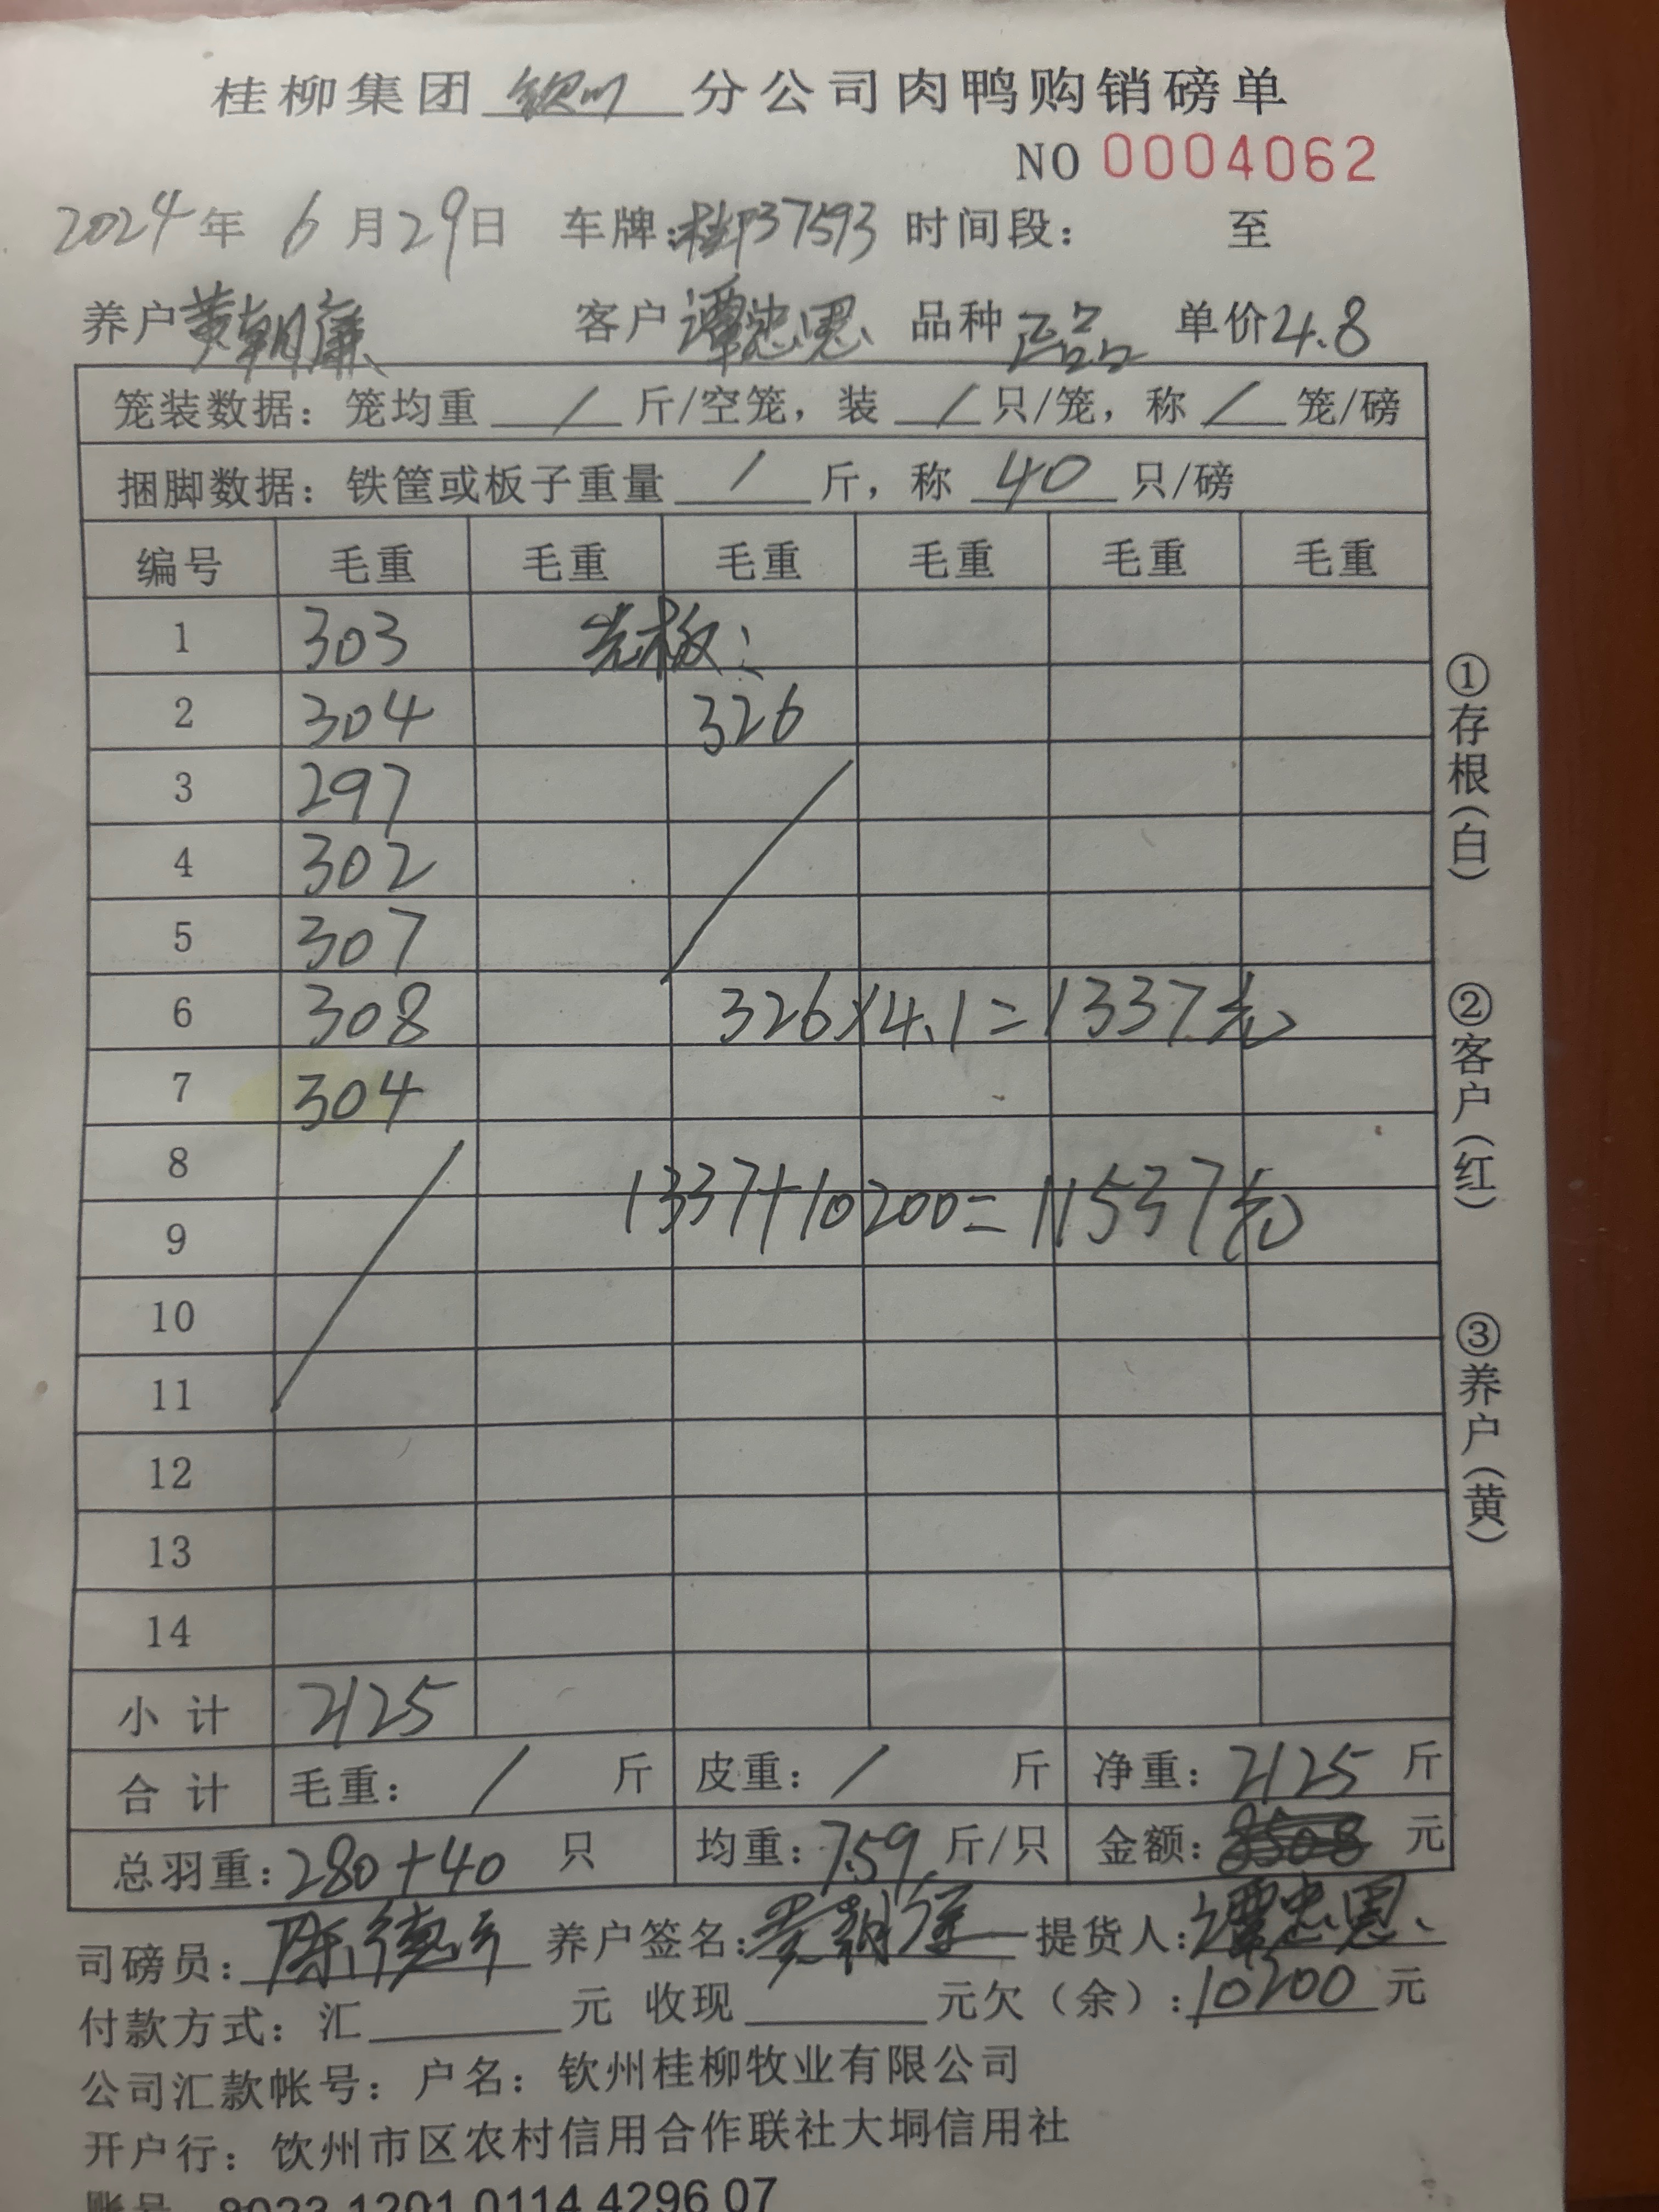 桂柳集团 钦州 分公司肉鸭购销磅单
NO 0004062
2024年 6月29日 车牌:桂P37593 时间段: 至
养户 黄朝廉 客户 谭忠恩 品种 正品 单价4.8
笼装数据: 笼均重 / 斤/空笼, 装 / 只/笼, 称 / 笼/磅
捆脚数据: 铁筐或板子重量 / 斤, 称 40 只/磅
编号 毛重 毛重 毛重 毛重 毛重 毛重
1 303 光板:
2 304 326
3 297
4 302
5 307
6 308 326×4.1=1337元
7 304
8
1337+10200=11537元
9
10
11
12
13
14
小计 2125
合计 毛重: / 斤 皮重: / 斤 净重: 2125 斤
总羽重: 280+40 只 均重: 7.59 斤/只 金额: 元
司磅员: 陈德 养户签名: 黄朝 提货人: 谭忠恩
付款方式: 汇 元 收现 元欠(余): 10200 元
公司汇款帐号: 户名: 钦州桂柳牧业有限公司
开户行: 钦州市区农村信用合作联社大垌信用社
账号 8023 1201 0114 4296 07
①存根(白)
②客户(红)
③养户(黄)